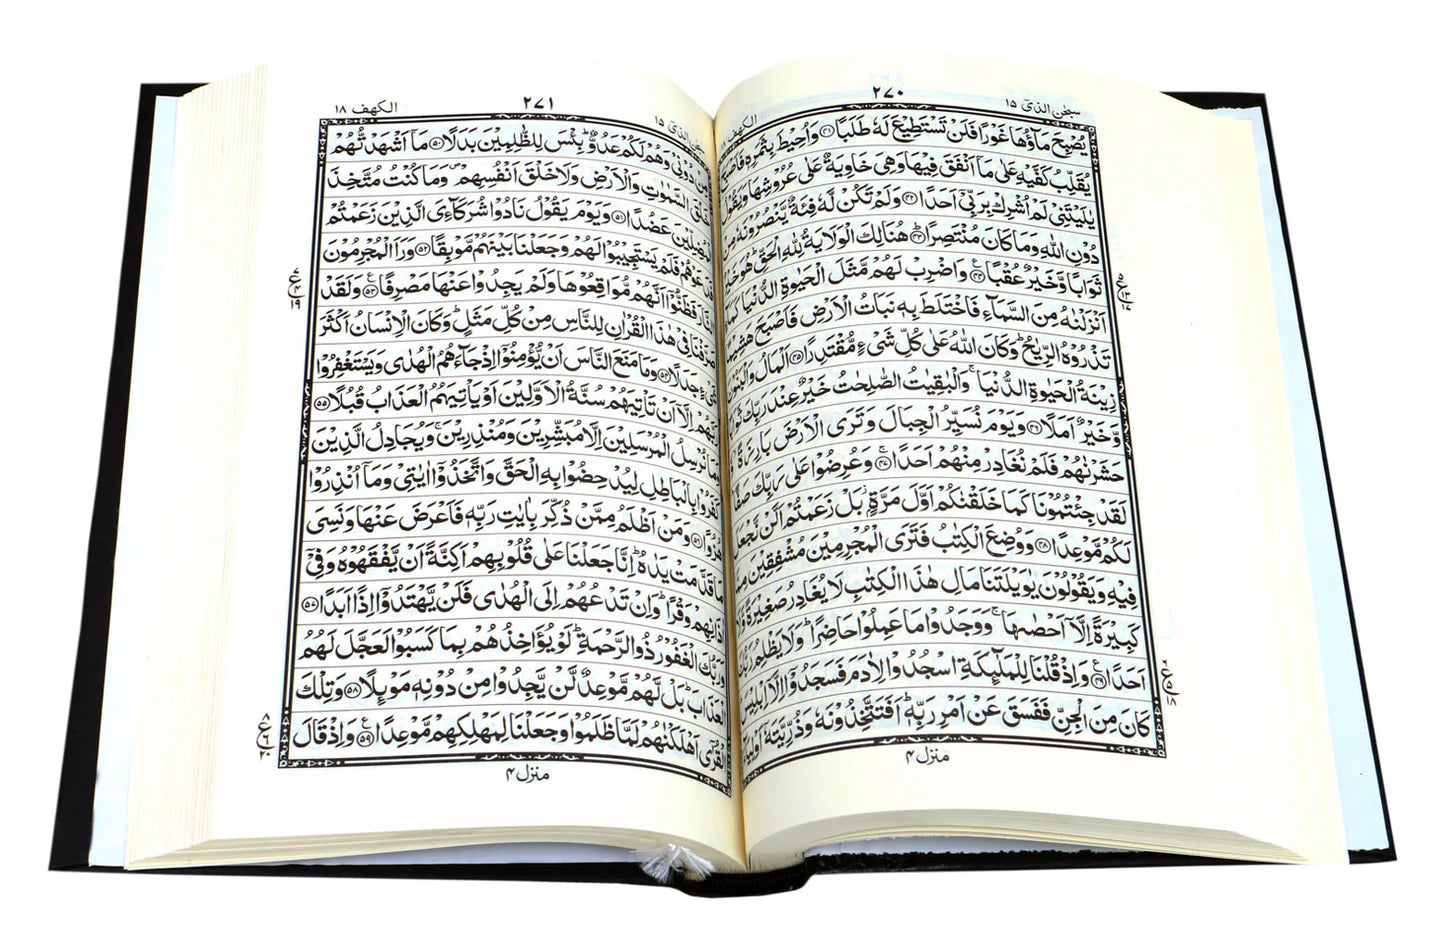 سبحٰن الذیٓ ۱۵ ۲۷۰ الكهف
يُصْبِحَ مَآؤُهَا غَوْرًا فَلَنْ تَسْتَطِيْعَ لَهٗ طَلَبًا ﴿۴۱﴾ وَاُحِيْطَ بِثَمَرِهٖ
يُقَلِّبُ كَفَّيْهِ عَلٰى مَآ اَنْفَقَ فِيْهَا وَهِىَ خَاوِيَةٌ عَلٰى عُرُوْشِهَا
يٰلَيْتَنِىْ لَمْ اُشْرِكْ بِرَبِّىْٓ اَحَدًا ﴿۴۲﴾ وَلَمْ تَكُنْ لَّهٗ فِئَةٌ يَّنْصُرُوْنَهٗ مِنْ
دُوْنِ اللّٰهِ وَمَا كَانَ مُنْتَصِرًا ﴿۴۳﴾ هُنَالِكَ الْوَلَايَةُ لِلّٰهِ الْحَقِّ هُوَ
ثَوَابًا وَّخَيْرٌ عُقْبًا ﴿۴۴﴾ وَاضْرِبْ لَهُمْ مَّثَلَ الْحَيٰوةِ الدُّنْيَا كَمَآءٍ
اَنْزَلْنٰهُ مِنَ السَّمَآءِ فَاخْتَلَطَ بِهٖ نَبَاتُ الْاَرْضِ فَاَصْبَحَ هَشِيْمًا
تَذْرُوْهُ الرِّيٰحُ ؕ وَكَانَ اللّٰهُ عَلٰى كُلِّ شَىْءٍ مُّقْتَدِرًا ﴿۴۵﴾ اَلْمَالُ وَالْبَنُوْنَ
زِيْنَةُ الْحَيٰوةِ الدُّنْيَا ۚ وَالْبٰقِيٰتُ الصّٰلِحٰتُ خَيْرٌ عِنْدَ رَبِّكَ
وَّخَيْرٌ اَمَلًا ﴿۴۶﴾ وَيَوْمَ نُسَيِّرُ الْجِبَالَ وَتَرَى الْاَرْضَ بَارِزَةً
حَشَرْنٰهُمْ فَلَمْ نُغَادِرْ مِنْهُمْ اَحَدًا ﴿۴۷﴾ وَعُرِضُوْا عَلٰى رَبِّكَ صَفًّا
لَقَدْ جِئْتُمُوْنَا كَمَا خَلَقْنٰكُمْ اَوَّلَ مَرَّةٍ ۢ بَلْ زَعَمْتُمْ اَلَّنْ نَّجْعَلَ
لَكُمْ مَّوْعِدًا ﴿۴۸﴾ وَوُضِعَ الْكِتٰبُ فَتَرَى الْمُجْرِمِيْنَ مُشْفِقِيْنَ مِمَّا
فِيْهِ وَيَقُوْلُوْنَ يٰوَيْلَتَنَا مَالِ هٰذَا الْكِتٰبِ لَا يُغَادِرُ صَغِيْرَةً
كَبِيْرَةً اِلَّآ اَحْصٰىهَا ۚ وَوَجَدُوْا مَا عَمِلُوْا حَاضِرًا ؕ وَلَا يَظْلِمُ رَبُّكَ
اَحَدًا ﴿۴۹﴾ وَاِذْ قُلْنَا لِلْمَلٰٓئِكَةِ اسْجُدُوْا لِاٰدَمَ فَسَجَدُوْٓا اِلَّآ اِبْلِيْسَ
كَانَ مِنَ الْجِنِّ فَفَسَقَ عَنْ اَمْرِ رَبِّهٖ ؕ اَفَتَتَّخِذُوْنَهٗ وَذُرِّيَّتَهٗٓ
منزل ۴
سبحٰن الذیٓ ۱۵ ۲۷۱ الكهف ۱۸
مِنْ دُوْنِىْ وَهُمْ لَكُمْ عَدُوٌّ ؕ بِئْسَ لِلظّٰلِمِيْنَ بَدَلًا ﴿۵۰﴾ مَآ اَشْهَدْتُّهُمْ
خَلْقَ السَّمٰوٰتِ وَالْاَرْضِ وَلَا خَلْقَ اَنْفُسِهِمْ ۪ وَمَا كُنْتُ مُتَّخِذَ
الْمُضِلِّيْنَ عَضُدًا ﴿۵۱﴾ وَيَوْمَ يَقُوْلُ نَادُوْا شُرَكَآءِىَ الَّذِيْنَ زَعَمْتُمْ
فَدَعَوْهُمْ فَلَمْ يَسْتَجِيْبُوْا لَهُمْ وَجَعَلْنَا بَيْنَهُمْ مَّوْبِقًا ﴿۵۲﴾ وَرَاَ الْمُجْرِمُوْنَ
النَّارَ فَظَنُّوْٓا اَنَّهُمْ مُّوَاقِعُوْهَا وَلَمْ يَجِدُوْا عَنْهَا مَصْرِفًا ﴿۵۳﴾ وَلَقَدْ
صَرَّفْنَا فِىْ هٰذَا الْقُرْاٰنِ لِلنَّاسِ مِنْ كُلِّ مَثَلٍ ؕ وَكَانَ الْاِنْسَانُ اَكْثَرَ
شَىْءٍ جَدَلًا ﴿۵۴﴾ وَمَا مَنَعَ النَّاسَ اَنْ يُّؤْمِنُوْٓا اِذْ جَآءَهُمُ الْهُدٰى وَيَسْتَغْفِرُوْا
رَبَّهُمْ اِلَّآ اَنْ تَاْتِيَهُمْ سُنَّةُ الْاَوَّلِيْنَ اَوْ يَاْتِيَهُمُ الْعَذَابُ قُبُلًا ﴿۵۵﴾
وَمَا نُرْسِلُ الْمُرْسَلِيْنَ اِلَّا مُبَشِّرِيْنَ وَمُنْذِرِيْنَ ۚ وَيُجَادِلُ الَّذِيْنَ
كَفَرُوْا بِالْبَاطِلِ لِيُدْحِضُوْا بِهِ الْحَقَّ وَاتَّخَذُوْٓا اٰيٰتِىْ وَمَآ اُنْذِرُوْا
هُزُوًا ﴿۵۶﴾ وَمَنْ اَظْلَمُ مِمَّنْ ذُكِّرَ بِاٰيٰتِ رَبِّهٖ فَاَعْرَضَ عَنْهَا وَنَسِىَ
مَا قَدَّمَتْ يَدٰهُ ؕ اِنَّا جَعَلْنَا عَلٰى قُلُوْبِهِمْ اَكِنَّةً اَنْ يَّفْقَهُوْهُ وَفِىْٓ
اٰذَانِهِمْ وَقْرًا ؕ وَاِنْ تَدْعُهُمْ اِلَى الْهُدٰى فَلَنْ يَّهْتَدُوْٓا اِذًا اَبَدًا ﴿۵۷﴾
وَرَبُّكَ الْغَفُوْرُ ذُو الرَّحْمَةِ ؕ لَوْ يُؤَاخِذُهُمْ بِمَا كَسَبُوْا لَعَجَّلَ لَهُمُ
الْعَذَابَ ؕ بَلْ لَّهُمْ مَّوْعِدٌ لَّنْ يَّجِدُوْا مِنْ دُوْنِهٖ مَوْئِلًا ﴿۵۸﴾ وَتِلْكَ
الْقُرٰٓى اَهْلَكْنٰهُمْ لَمَّا ظَلَمُوْا وَجَعَلْنَا لِمَهْلِكِهِمْ مَّوْعِدًا ﴿۵۹﴾ وَاِذْ قَالَ
منزل ۴